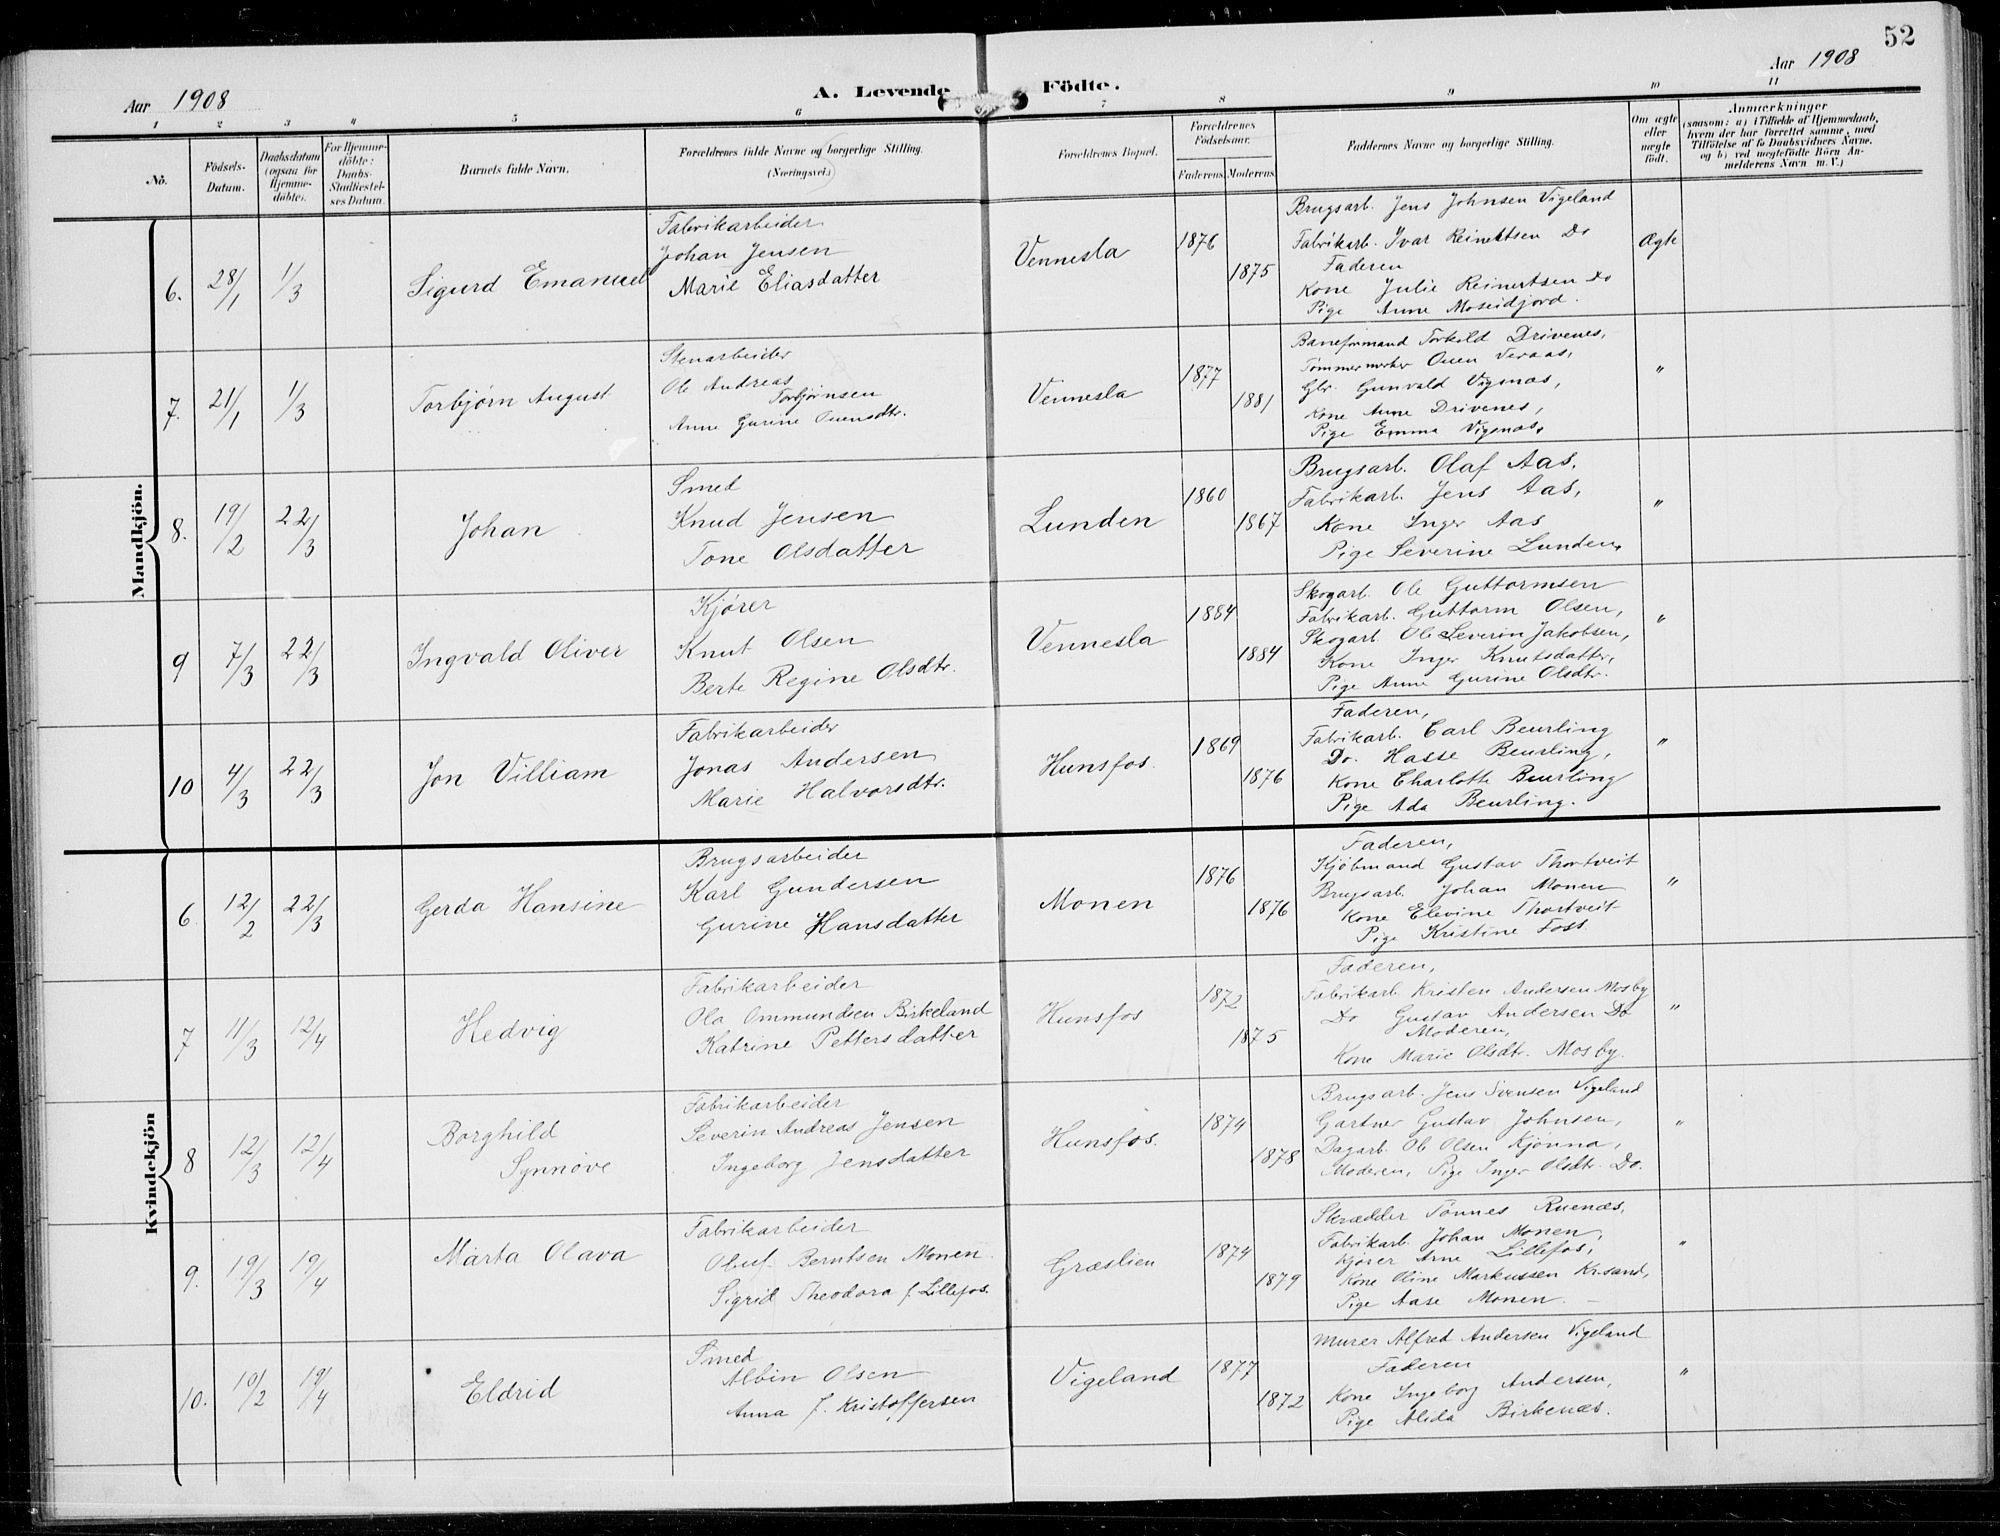 52
Aar 1908
A. Levende Födte.
Aar 1908
1 2 3 4 5 6 7 8 9 10 11
No.
Födsels-Datum.
Daabsdatum (ogsaa for Hjemmedöbte).
For Hjemmedöbte: Daabs-Stadfæstelses Datum.
Barnets fulde Navn.
Forældrenes fulde Navne og borgerlige Stilling.
(Næringsvei.)
Forældrenes Bopæl.
Forældrenes Födselsaar.
Faderens. Moderens.
Faddernes Navne og borgerlige Stilling.
Om ægte eller uægte födt.
Anmærkninger
(saasom: a) i Tilfælde af Hjemmedaab, hvem der har forrettet samme, med Tilföielse af to Daabsvidners Navne, og b) ved uægtefödte Börn Anmelderens Navn m. V.)
Mandkjön.
6. 28/1 1/3 Sigurd Emanuel
Fabrikarbeider
Johan Jensen
Marie Eliasdatter
Vennesla 1876 1875
Brugsarb. Jens Johnsen Vigeland
Fabrikarb. Ivar Reinertsen Do
Faderen
Kone Julie Reinertsen Do
Pige Anne Moseidjord.
Ægte
7. 21/1 1/3 Torbjørn August
Stenarbeider
Ole Andreas
Torbjørnsen
Anne Gurine Ouensdtr.
Vennesla 1877 1881
Baneformand Torkild Drivenes,
Tømmermerker Ouen Veraas,
Gbr. Gunvald Vigsnæs,
Kone Anne Drivenes,
Pige Emma Vigsnæs,
"
8. 19/2 22/3 Johan
Smed
Knud Jensen
Tone Olsdatter
Lunden 1860 1867
Brugsarb. Olaf Aas,
Fabrikarb. Jens Aas,
Kone Inger Aas
Pige Severine Lunden,
"
9 7/3 22/3 Ingvald Oliver
Kjører
Knut Olsen
Berte Regine Olsdtr.
Vennesla 1884 1884
Skogarb. Ole Guttormsen
Fabrikarb. Guttorm Olsen,
Skogarb. Ole Severin Jakobsen,
Kone Inger Knutsdatter,
Pige Anne Gurine Olsdtr.
"
10 4/3 22/3 Jon Villiam
Fabrikarbeider
Jonas Andersen
Marie Halvorsdtr.
Hunsfos. 1869 1876
Faderen,
Fabrikarb. Carl Beurling
Do. Hasse Beurling,
Kone Charlotte Beurling
Pige Ada Beurling.
"
Kvindekjön
6. 12/2 22/3 Gerda Hansine
Brugsarbeider
Karl Gundersen
Gurine Hansdatter
Monen 1876 1876
Faderen,
Kjøbmand Gustav Thortveit
Brugsarb. Johan Monen
Kone Elevine Thortveit
Pige Kristine Foss
"
7 11/3 12/4 Hedvig
Fabrikarbeider
Ola Ommundsen Birkeland
Katrine Pettersdatter
Hunsfos 1872 1875
Faderen,
Fabrikarb. Kristen Andersen Mosby
Do Gustav Andersen Do
Moderen,
Kone Marie Olsdtr. Mosby.
"
8 12/3 12/4 Borghild
Synnøve
Fabrikarbeider
Severin Andreas Jensen
Ingeborg Jensdatter
Hunsfos. 1874 1878
Brugsarb. Jens Svensen Vigeland
Gartner Gustav Johnsen,
Dagarb. Ole Olsen Kjønna,
Moderen, Pige Inger Olsdtr. Do.
"
9. 19/3 19/4 Marta Olava
Fabrikarbeider
Oluf Berntsen Monen
Sigrid Theodora f. Lillefos.
Græslien 1874 1879
Skrædder Tønnes Ruenæs,
Fabrikarb. Johan Monen,
Kjører Arne Lillefos,
Kone Oline Markussen Kr.sand,
Pige Aase Monen. —
"
10. 10/2 19/4 Eldrid
Smed
Albin Olsen
Anna f. Kristoffersen
Vigeland 1877 1872
Murer Alfred Andersen Vigeland
Faderen
Kone Ingeborg Andersen,
Pige Alida Birkenæs.
"